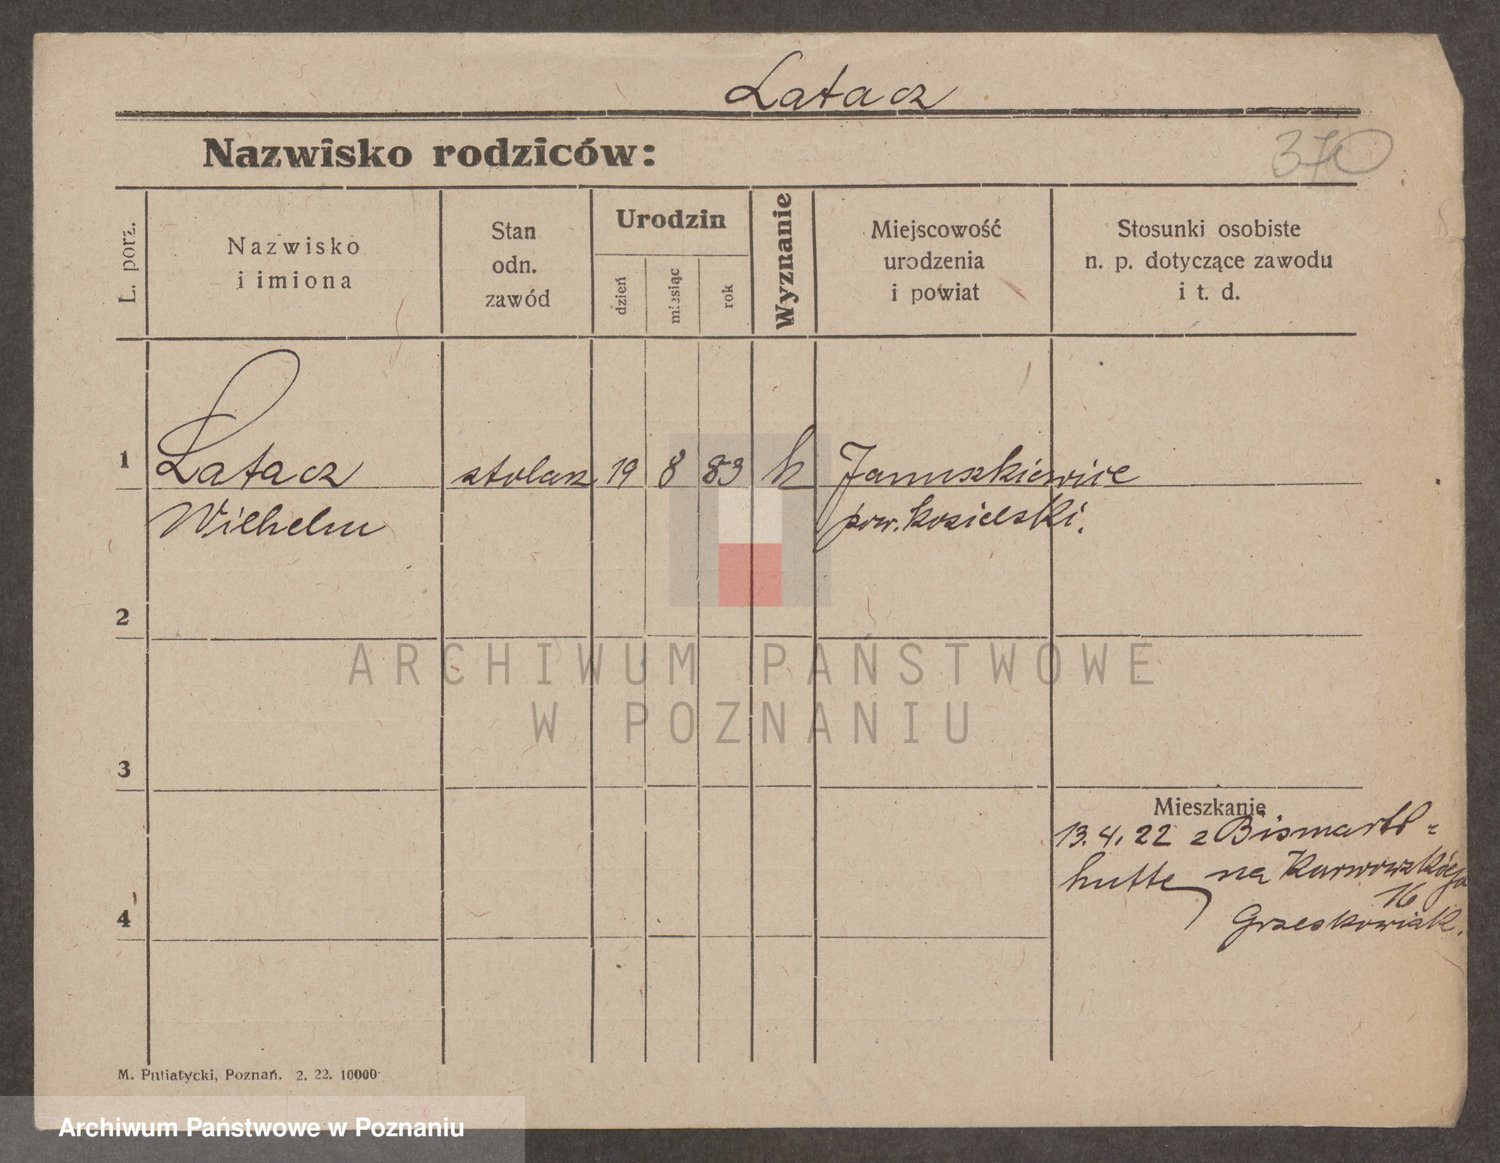 Latacz
Nazwisko rodziców:
370
L. porz.
Nazwisko
i imiona
Stan
odn.
zawód
Urodzin
dzień
miesiąc
rok
Wyznanie
Miejscowość
urodzenia
i powiat
Stosunki osobiste
n. p. dotyczące zawodu
i t. d.
1
Latacz
Wilhelm
stolarz
19
8
83
k
Januszkiewice
pow. kozielski.
2
3
4
Mieszkanie
13. 4. 22 z Bismark-
hutte na Karwowskiego
16
Grzeskowiak.
M. Putiatycki, Poznań. 2. 22. 10000
ARCHIWUM PAŃSTWOWE
W POZNANIU
Archiwum Państwowe w Poznaniu